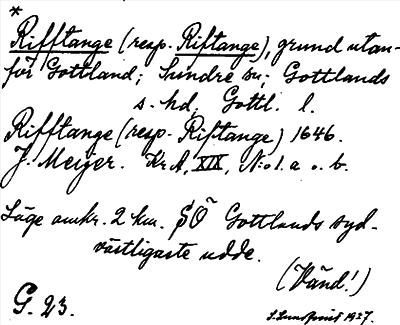 *
Rifftange (resp. Riftange), grund utan-
för Gottland; Sundre sn; Gottlands
s. hd, Gottl. l.
Rifftange (resp. Riftange) 1646.
J. Meijer. Kr A, XIX, N:o 1. a o. b.
Läge omkr. 2 km. SO Gottlands syd-
västligaste udde.
(Vänd!)
G. 23.
S. Lundqvist 1927.